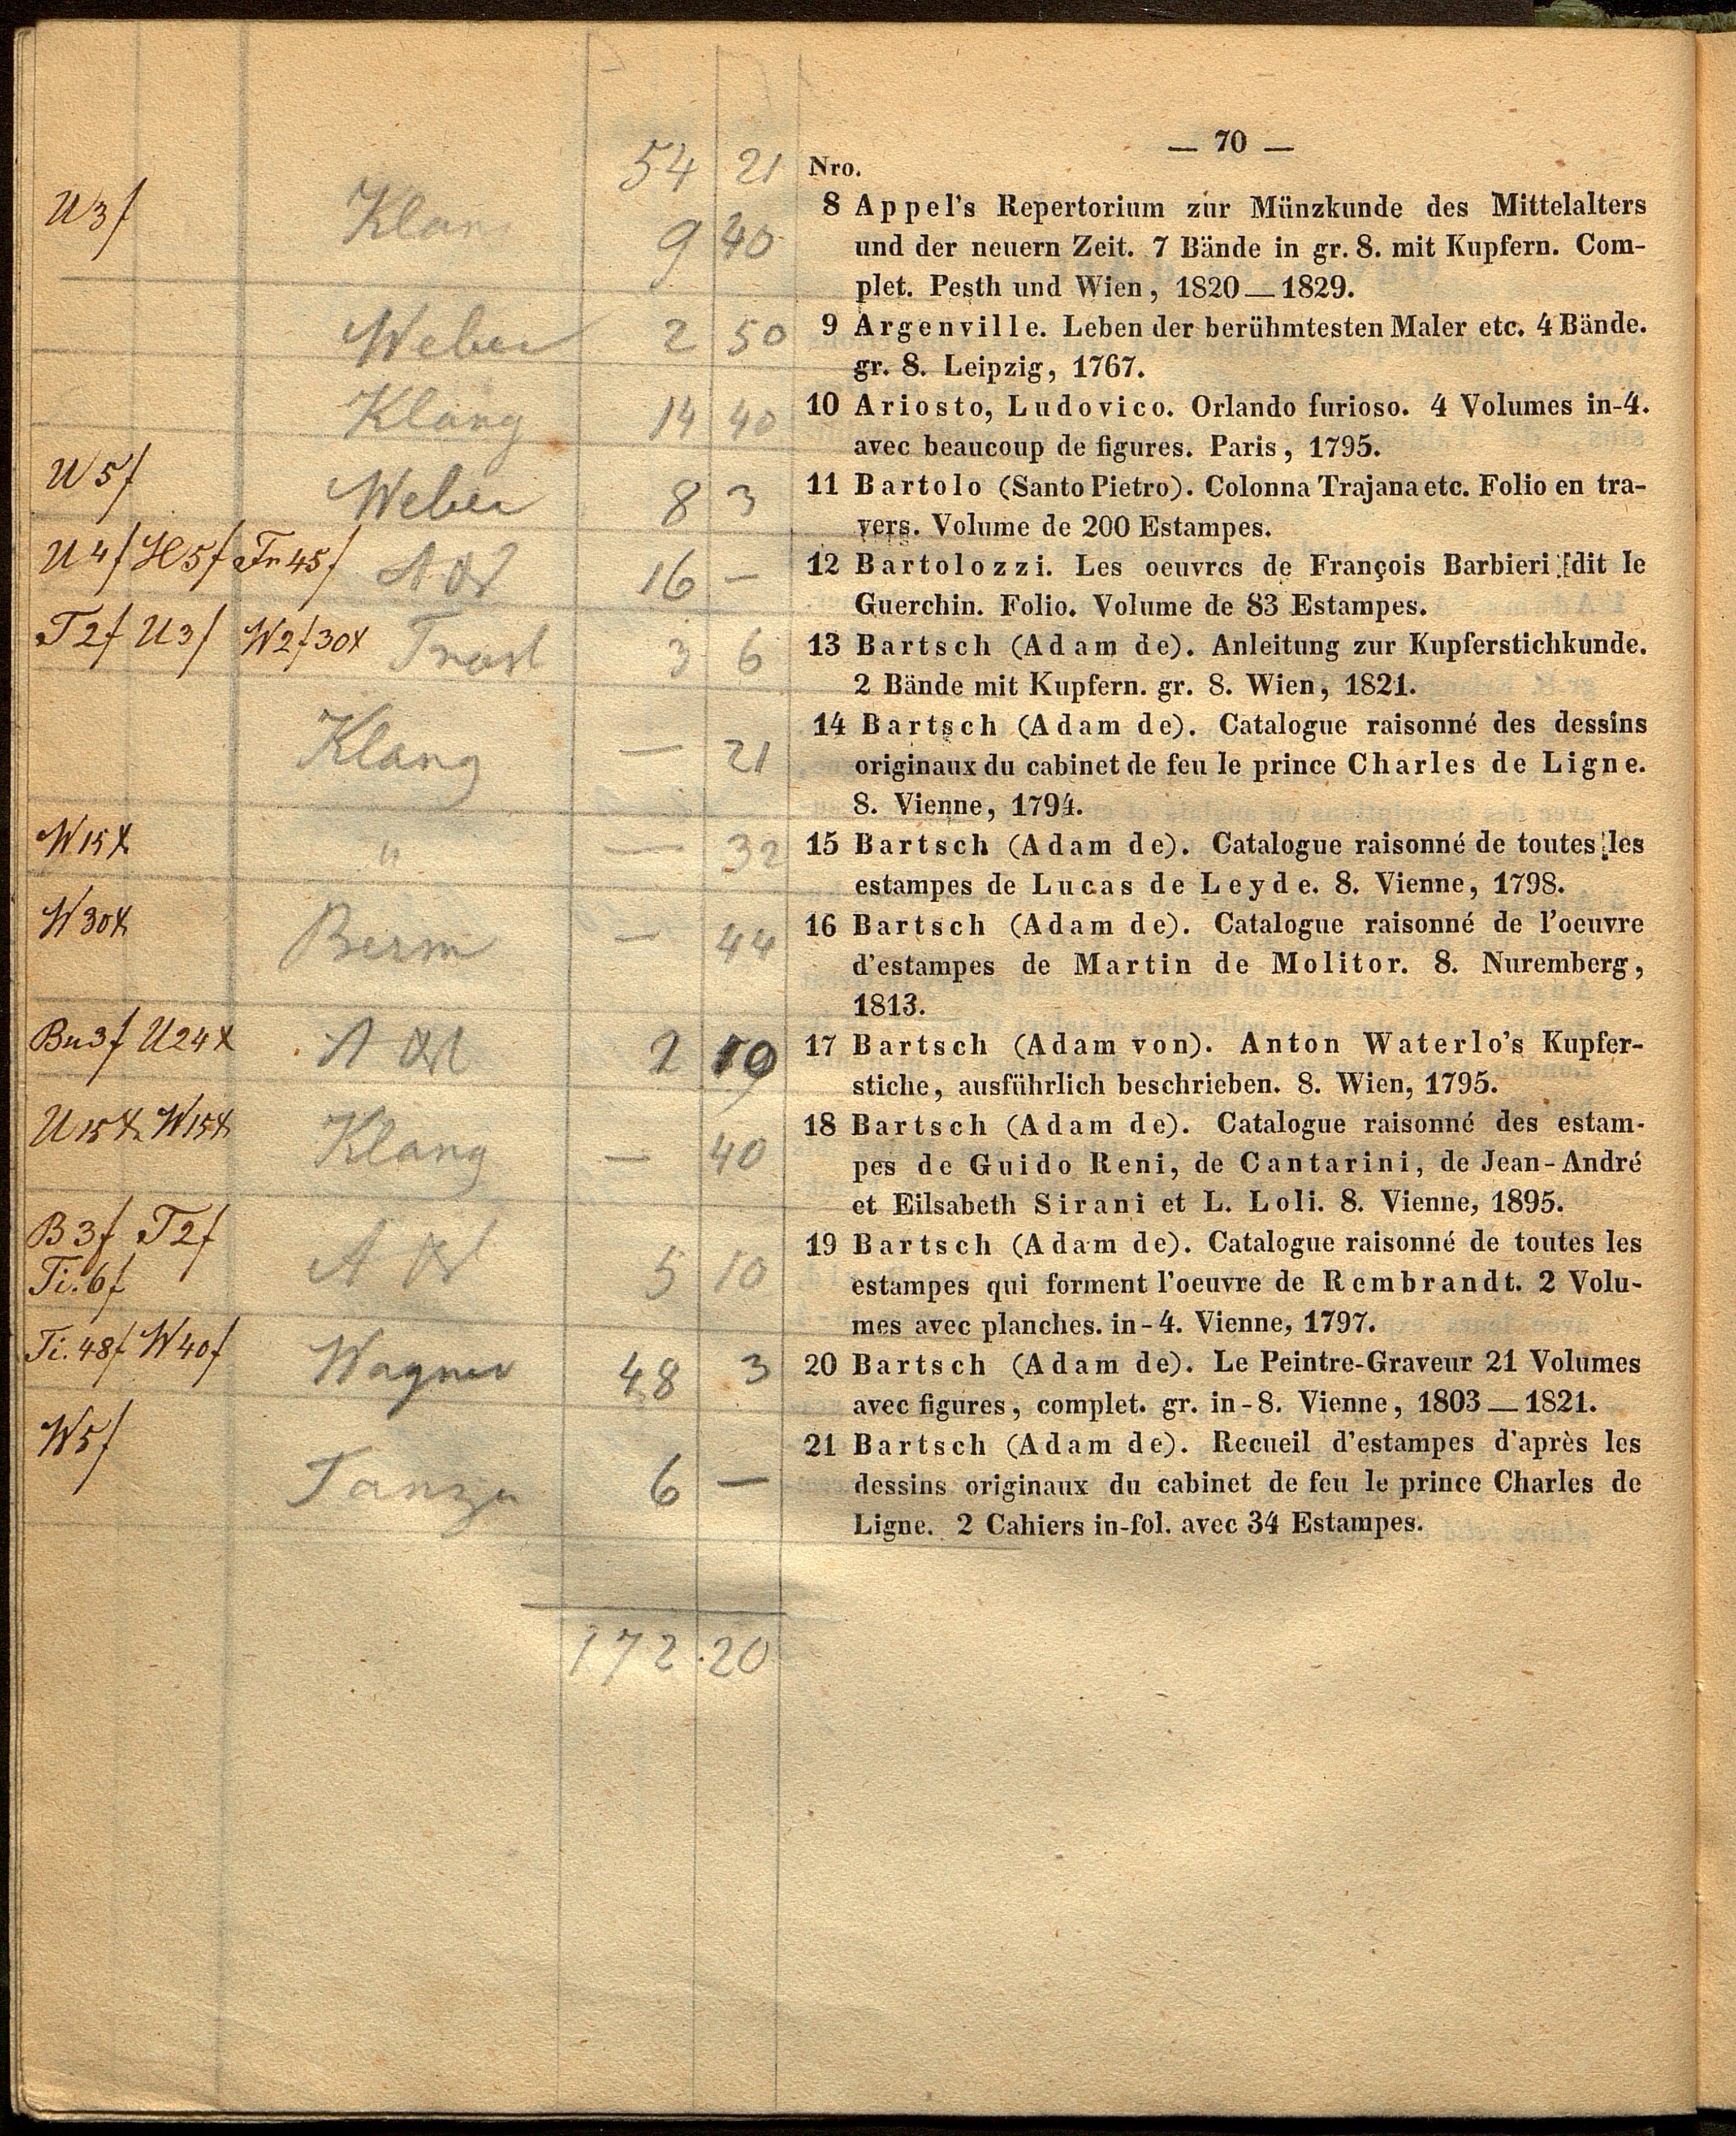 — 70 —
54 21
Nro.
U3f Klan 9 40
8 Appel's Repertorium zur Münzkunde des Mittelalters
und der neuern Zeit. 7 Bände in gr. 8. mit Kupfern. Com-
plet. Pesth und Wien, 1820—1829.
Weber 2 50
9 Argenville. Leben der berühmtesten Maler etc. 4 Bände.
gr. 8. Leipzig, 1767.
Klang 14 40
10 Ariosto, Ludovico. Orlando furioso. 4 Volumes in-4.
avec beaucoup de figures. Paris, 1795.
W5f Weber 8 3
11 Bartolo (Santo Pietro). Colonna Trajana etc. Folio en tra-
vers. Volume de 200 Estampes.
U4f H5f Fr45f 16 —
12 Bartolozzi. Les oeuvres de François Barbieri [dit le
Guerchin. Folio. Volume de 83 Estampes.
T2f U3f W2f30x 3 6
13 Bartsch (Adam de). Anleitung zur Kupferstichkunde.
2 Bände mit Kupfern. gr. 8. Wien, 1821.
Klang — 21
14 Bartsch (Adam de). Catalogue raisonné des dessins
originaux du cabinet de feu le prince Charles de Ligne.
8. Vienne, 1794.
W15x " — 32
15 Bartsch (Adam de). Catalogue raisonné de toutes les
estampes de Lucas de Leyde. 8. Vienne, 1798.
W30x Berm — 44
16 Bartsch (Adam de). Catalogue raisonné de l'oeuvre
d'estampes de Martin de Molitor. 8. Nuremberg,
1813.
Bu3f U24x 2
17 Bartsch (Adam von). Anton Waterlo's Kupfer-
stiche, ausführlich beschrieben. 8. Wien, 1795.
U15x W15x Klang — 40
18 Bartsch (Adam de). Catalogue raisonné des estam-
pes de Guido Reni, de Cantarini, de Jean-André
et Eilsabeth Sirani et L. Loli. 8. Vienne, 1895.
B3f T2f
Ti.6f 5 10
19 Bartsch (Adam de). Catalogue raisonné de toutes les
estampes qui forment l'oeuvre de Rembrandt. 2 Volu-
mes avec planches. in-4. Vienne, 1797.
Ti.48f W40f Wagner 48 3
20 Bartsch (Adam de). Le Peintre-Graveur 21 Volumes
avec figures, complet. gr. in-8. Vienne, 1803—1821.
W5f 6 —
21 Bartsch (Adam de). Recueil d'estampes d'après les
dessins originaux du cabinet de feu le prince Charles de
Ligne. 2 Cahiers in-fol. avec 34 Estampes.
172.20